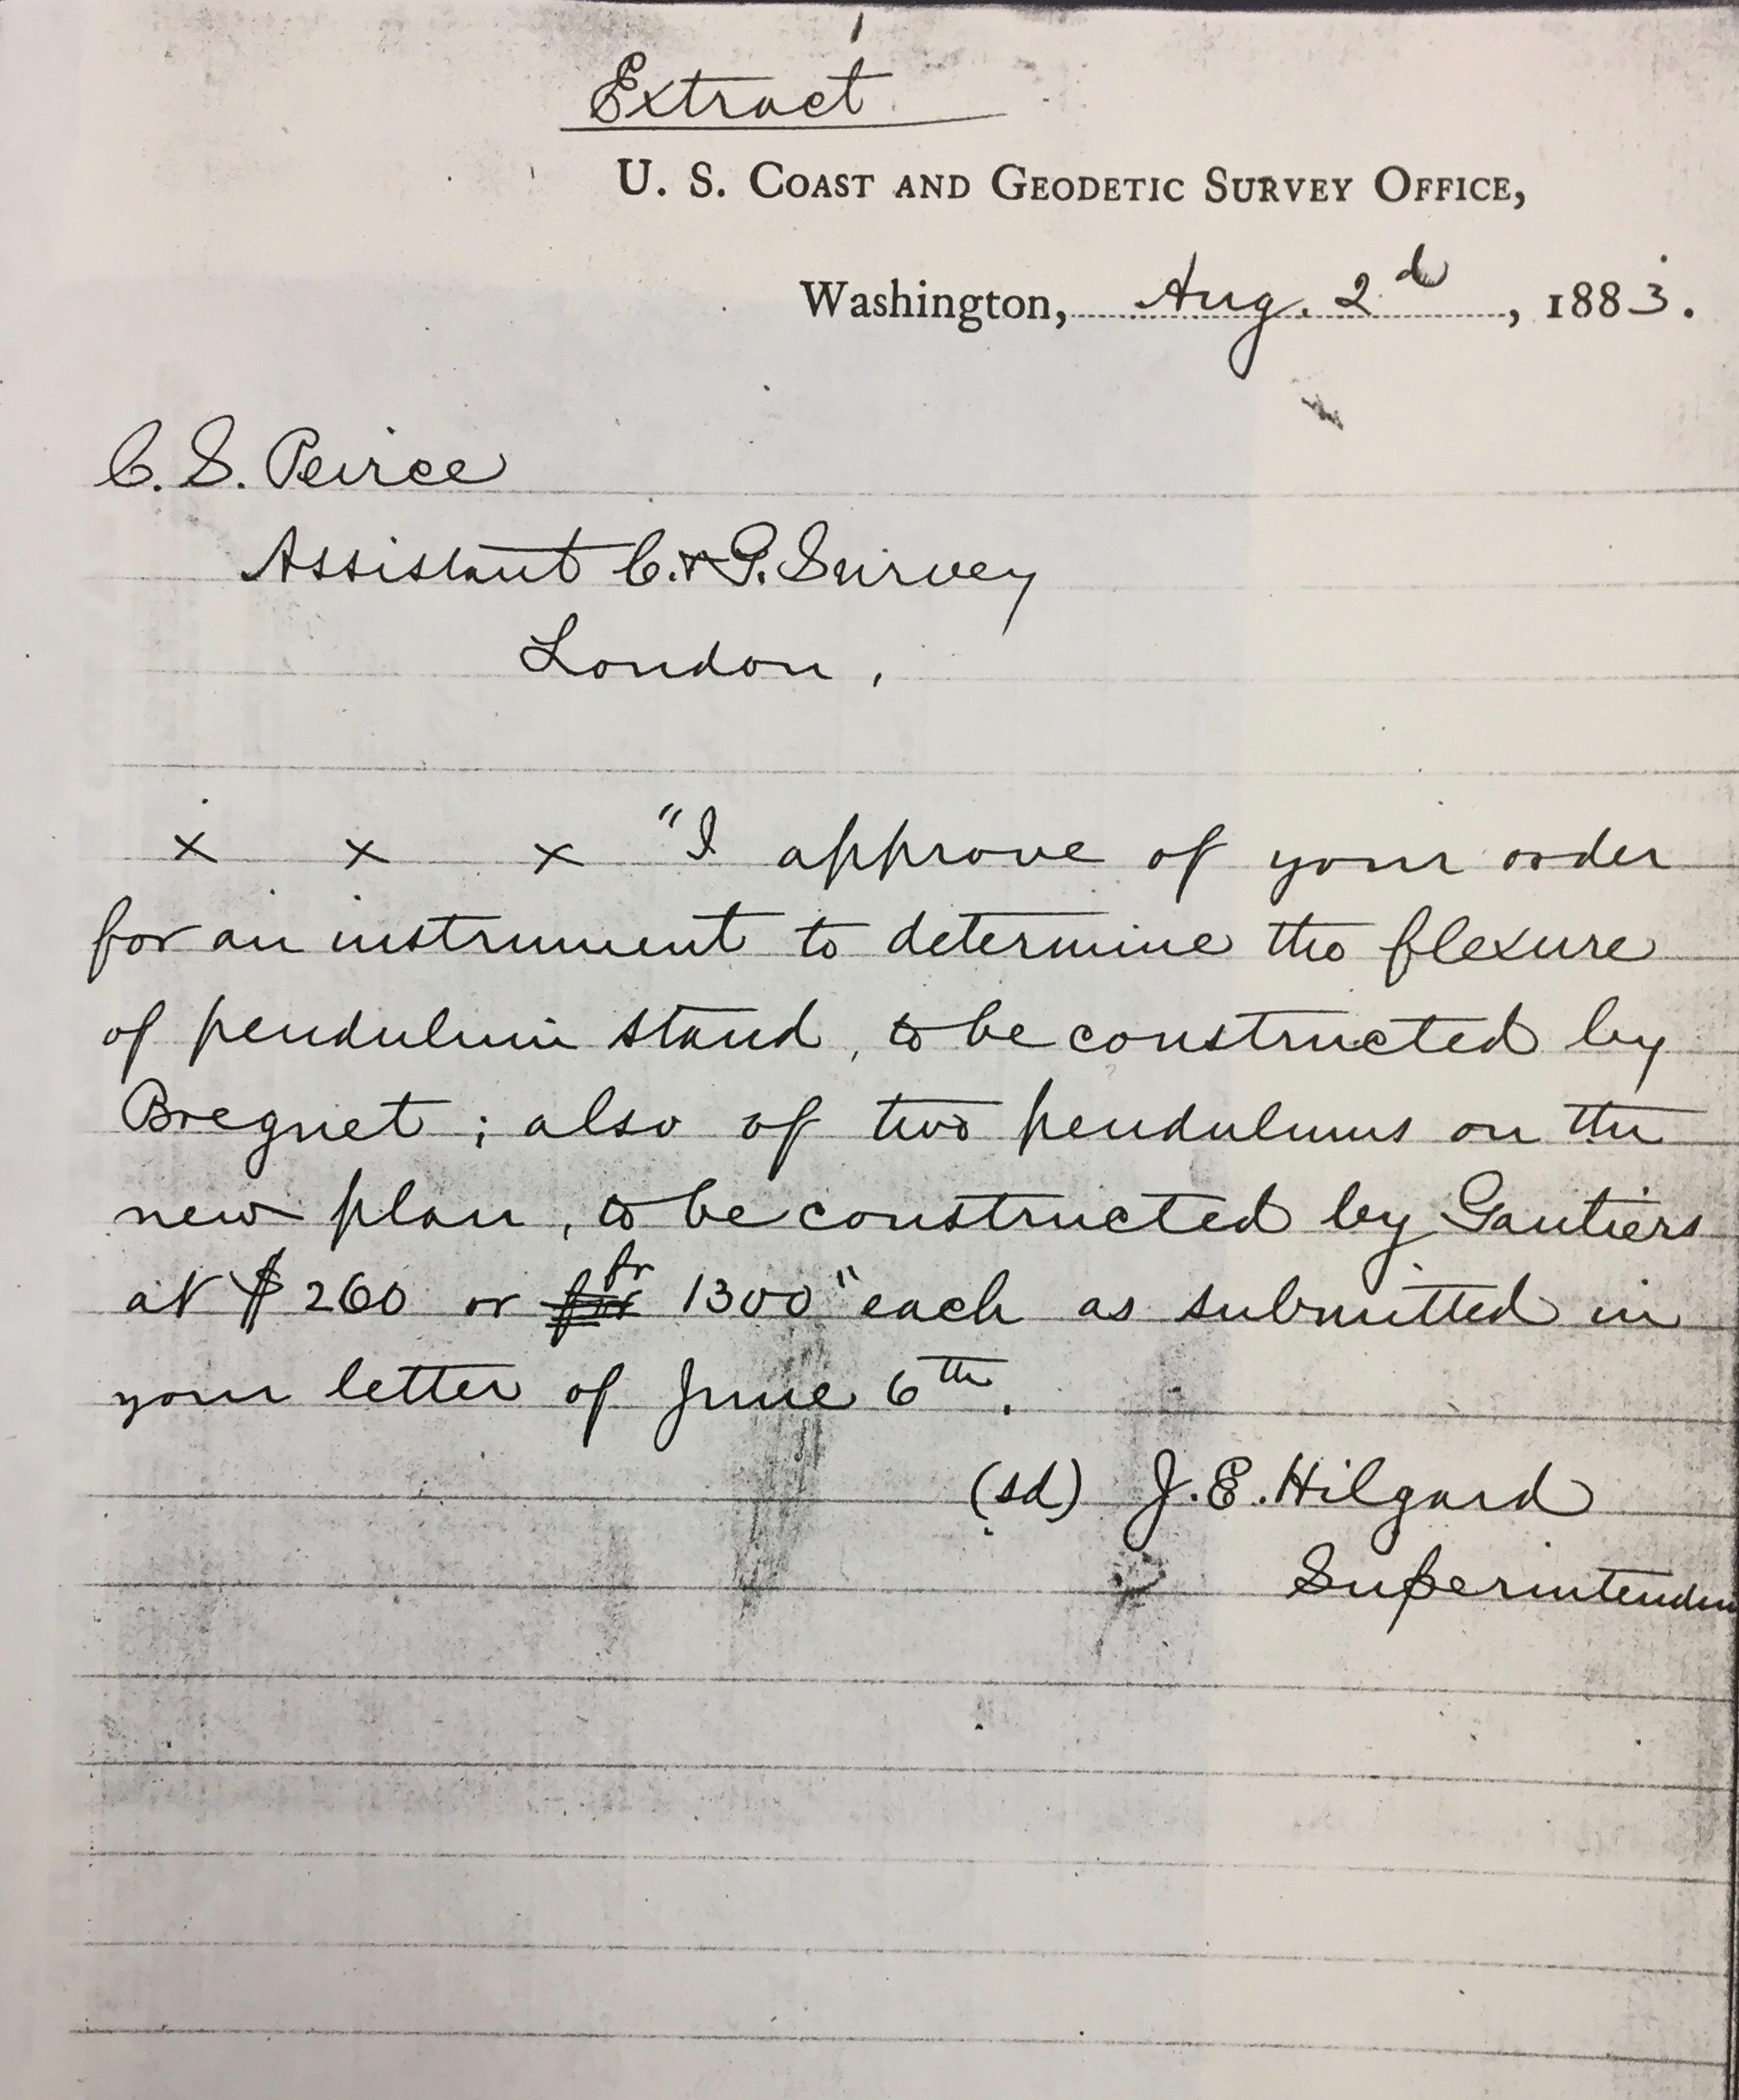 Extract
U. S. COAST AND GEODETIC SURVEY OFFICE,
Washington, Aug. 2d, 1883.
C. S. Peirce
Assistant C. & G. Survey
London,
x x x "I approve of your order
for an instrument to determine the flexure
of pendulum stand, to be constructed by
Breguet; also of two pendulums on the
new plan, to be constructed by Gautiers
at $260 or fr 1300" each as submitted in
your letter of June 6th.
(sd) J. E. Hilgard
Superintenden